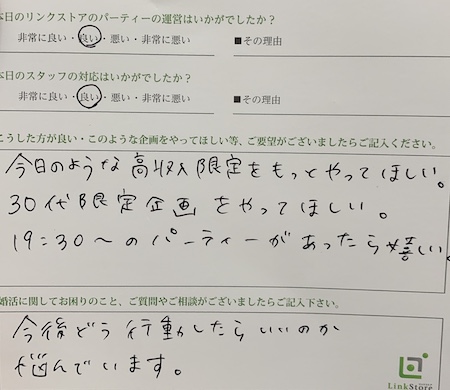 本日のリンクストアのパーティーの運営はいかがでしたか？
非常に良い・良い・悪い・非常に悪い ■その理由
本日のスタッフの対応はいかがでしたか？
非常に良い・良い・悪い・非常に悪い ■その理由
こうした方が良い・このような企画をやってほしい等、ご要望がございましたらご記入ください。
今日のような高収入限定をもっとやってほしい。
30代限定企画をやってほしい。
19:30～のパーティーがあったら嬉しい。
婚活に関してお困りのこと、ご質問やご相談がございましたらご記入下さい。
今後どう行動したらいいのか
悩んでいます。
LinkStore